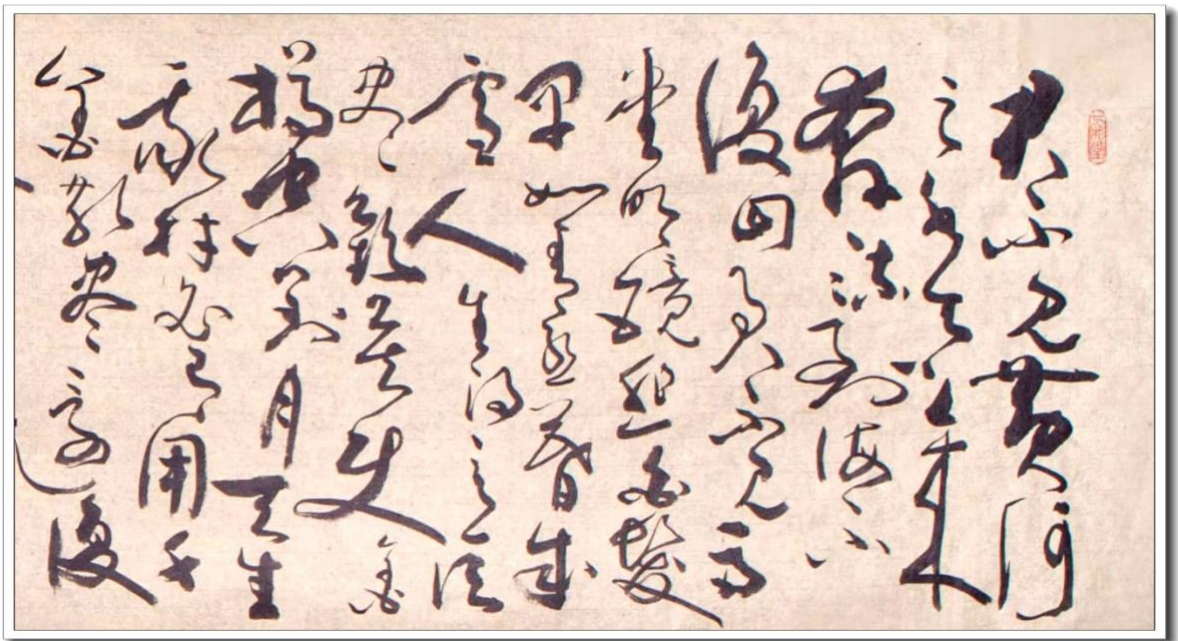 君不見黃河
之水天上來
奔流到海不
復回君不見高
堂明鏡悲白髮
早如青絲暮成
雪人生得意須
尽歡莫使金
樽空對月天生
我材必有用千
金散尽還復